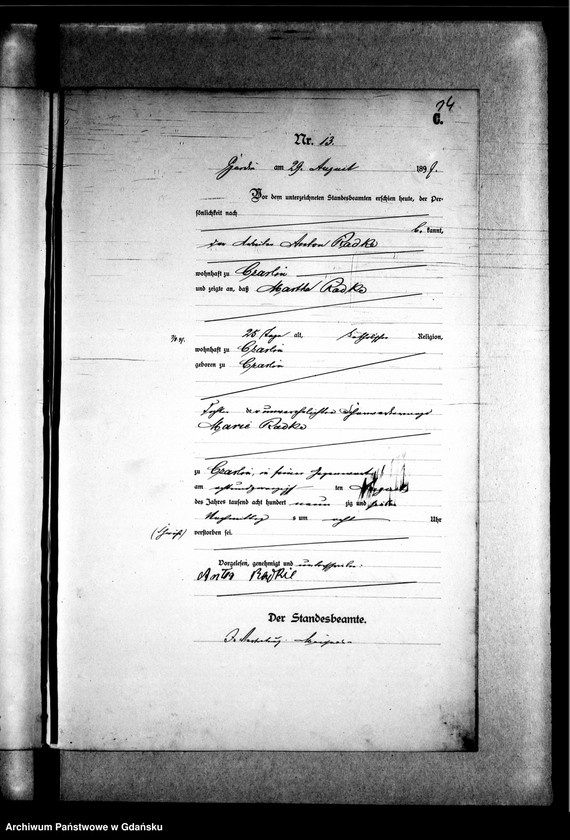 74
C.
Nr. 13.
am 29. August 1897.
Vor dem unterzeichneten Standesbeamten erschien heute, der Per-
sönlichkeit nach
be kannt,
der Arbeiter Anton Radke
wohnhaft zu Czarlin
und zeigte an, daß Martha Radke
25 Tage alt, katholischer Religion,
wohnhaft zu Czarlin
geboren zu Czarlin
Tochter der unverehelichten
Marie Radke
zu Czarlin, in seiner Gegenwart
am achtundzwanzigsten ten August
des Jahres tausend acht hundert neun zig und sieben
Nachmittags s um acht Uhr
verstorben sei.
Vorgelesen, genehmigt und unterschrieben
Anton Radke
Der Standesbeamte.
Archiwum Państwowe w Gdańsku